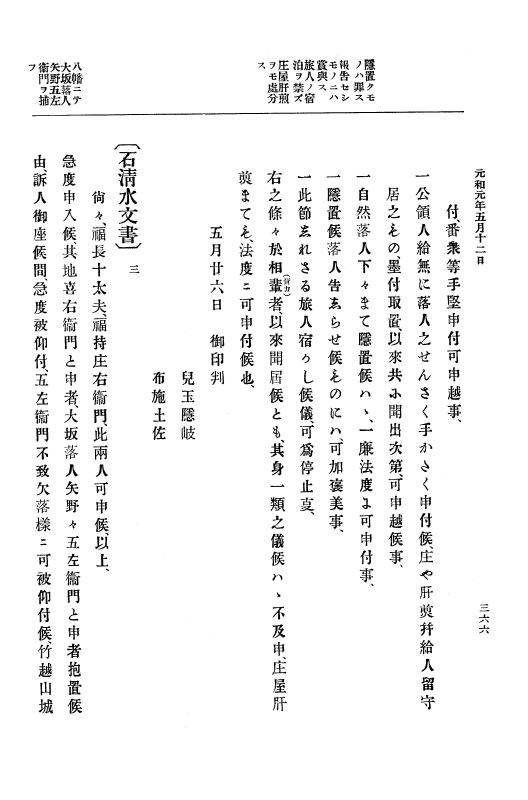 元和元年五月十二日
三六六
隱置クモ
ノハ罪ス
報告セシ
モノニハ
賞與ス
旅人ノ宿
泊ヲ禁ズ
庄屋肝煎
ヲモ處分
ス
八幡ニテ
大坂落人
矢野五左
衞門ヲ捕
フ
付番衆等手堅申付可申越事、
一公領人給無に落人之せんさく手かさく申付候、庄や肝煎幷給人留守
居之もの墨付取置、以來共ニ聞出次第、可申越候事、
一自然落人下々まて隱置候ハヽ、一廉法度よ可申付事、
一隱置候落人告志らせ候ものにハ、可加褒美事、
一此節志れさる旅人宿かし候儀、可爲停止㕝、
右之條々於相輩者、以來聞居候とも、其身一類之儀候ハヽ不及申、庄屋肝
(背カ)
煎まても、法度ニ可申付候也、
五月廿六日　御印判
兒玉隱岐
布施土佐
〔石淸水文書〕三
尙々、福長十太夫、福持庄右衞門、此兩人可申候、以上、
急度申入候、其地喜右衞門と申者、大坂落人矢野々五左衞門と申者抱置候
由、訴人御座候間、急度被仰付、五左衞門不致欠落樣ニ可被仰付候、竹越山城